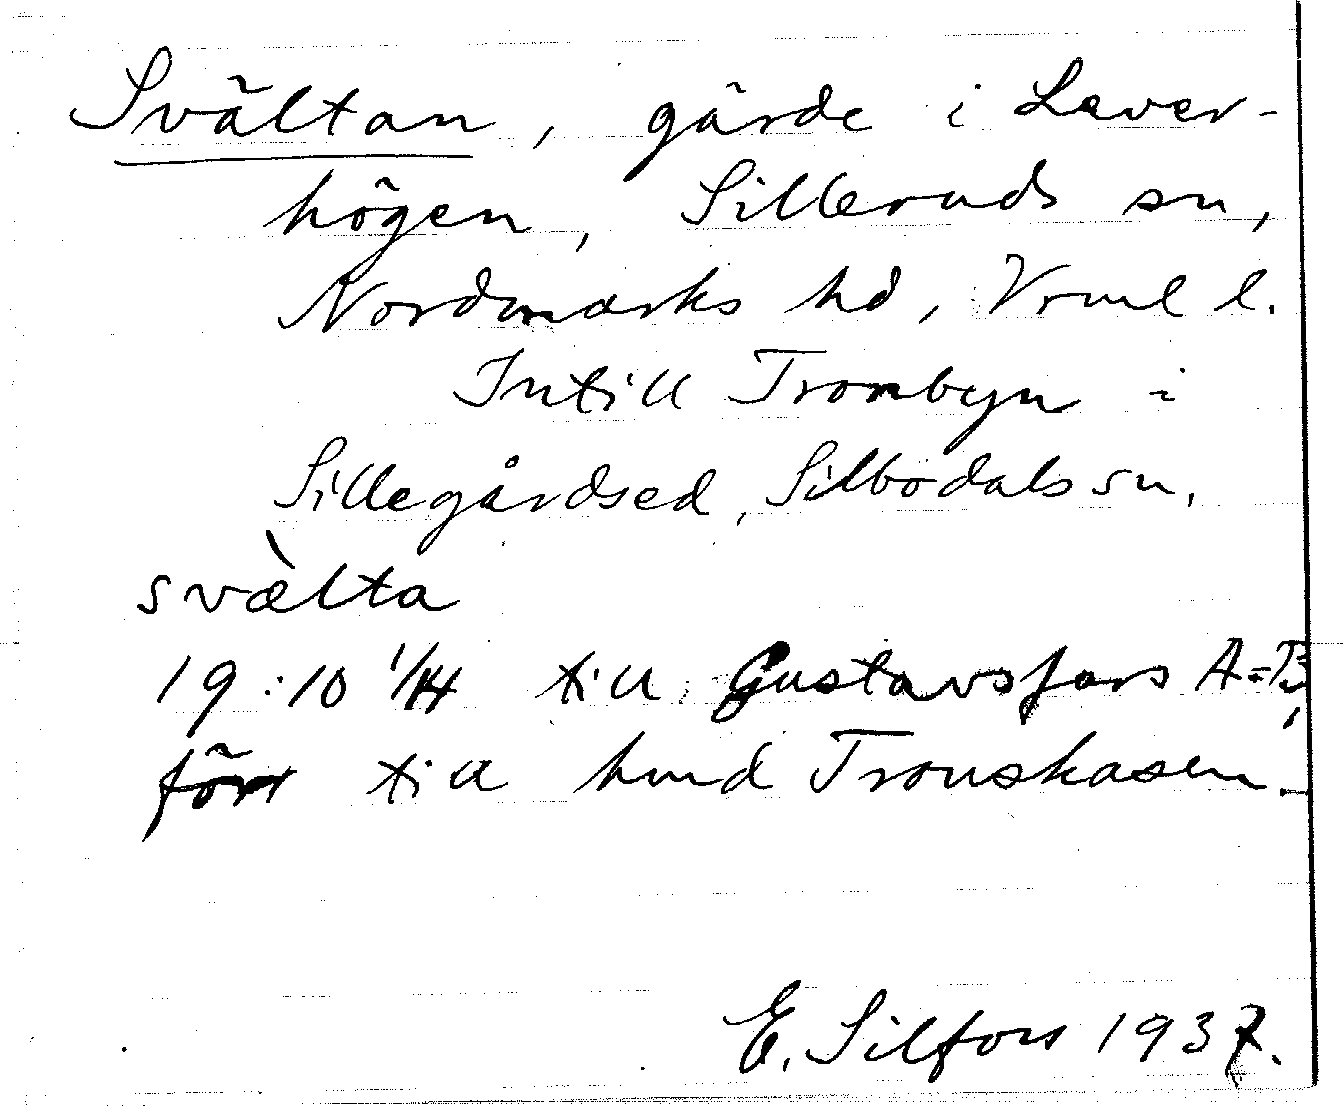 Svältan, gärde i Laver-
högen, Silleruds sn,
Nordmarks hd, Vrml l.
Intill Trombyn i
Sillegårdsed, Silbodals sn.
svæ̀lta
19:10 1/14 till Gustavsfors A=B,
fört till hmd Tronskasen.
E. Silfors 1937.